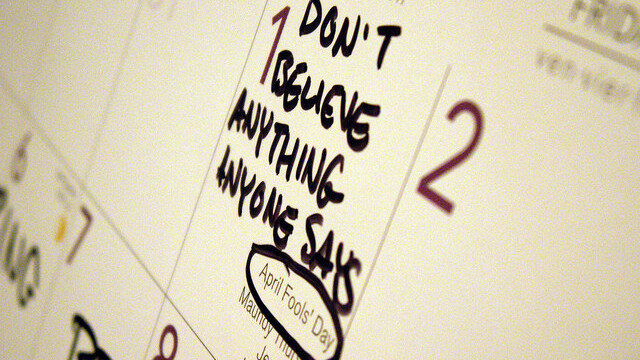 FRIDA
vendredi
1
DON'T
BELIEVE
ANYTHING
ANYONE SAYS
April Fools' Day
Maundy Thur
2
6
7
8